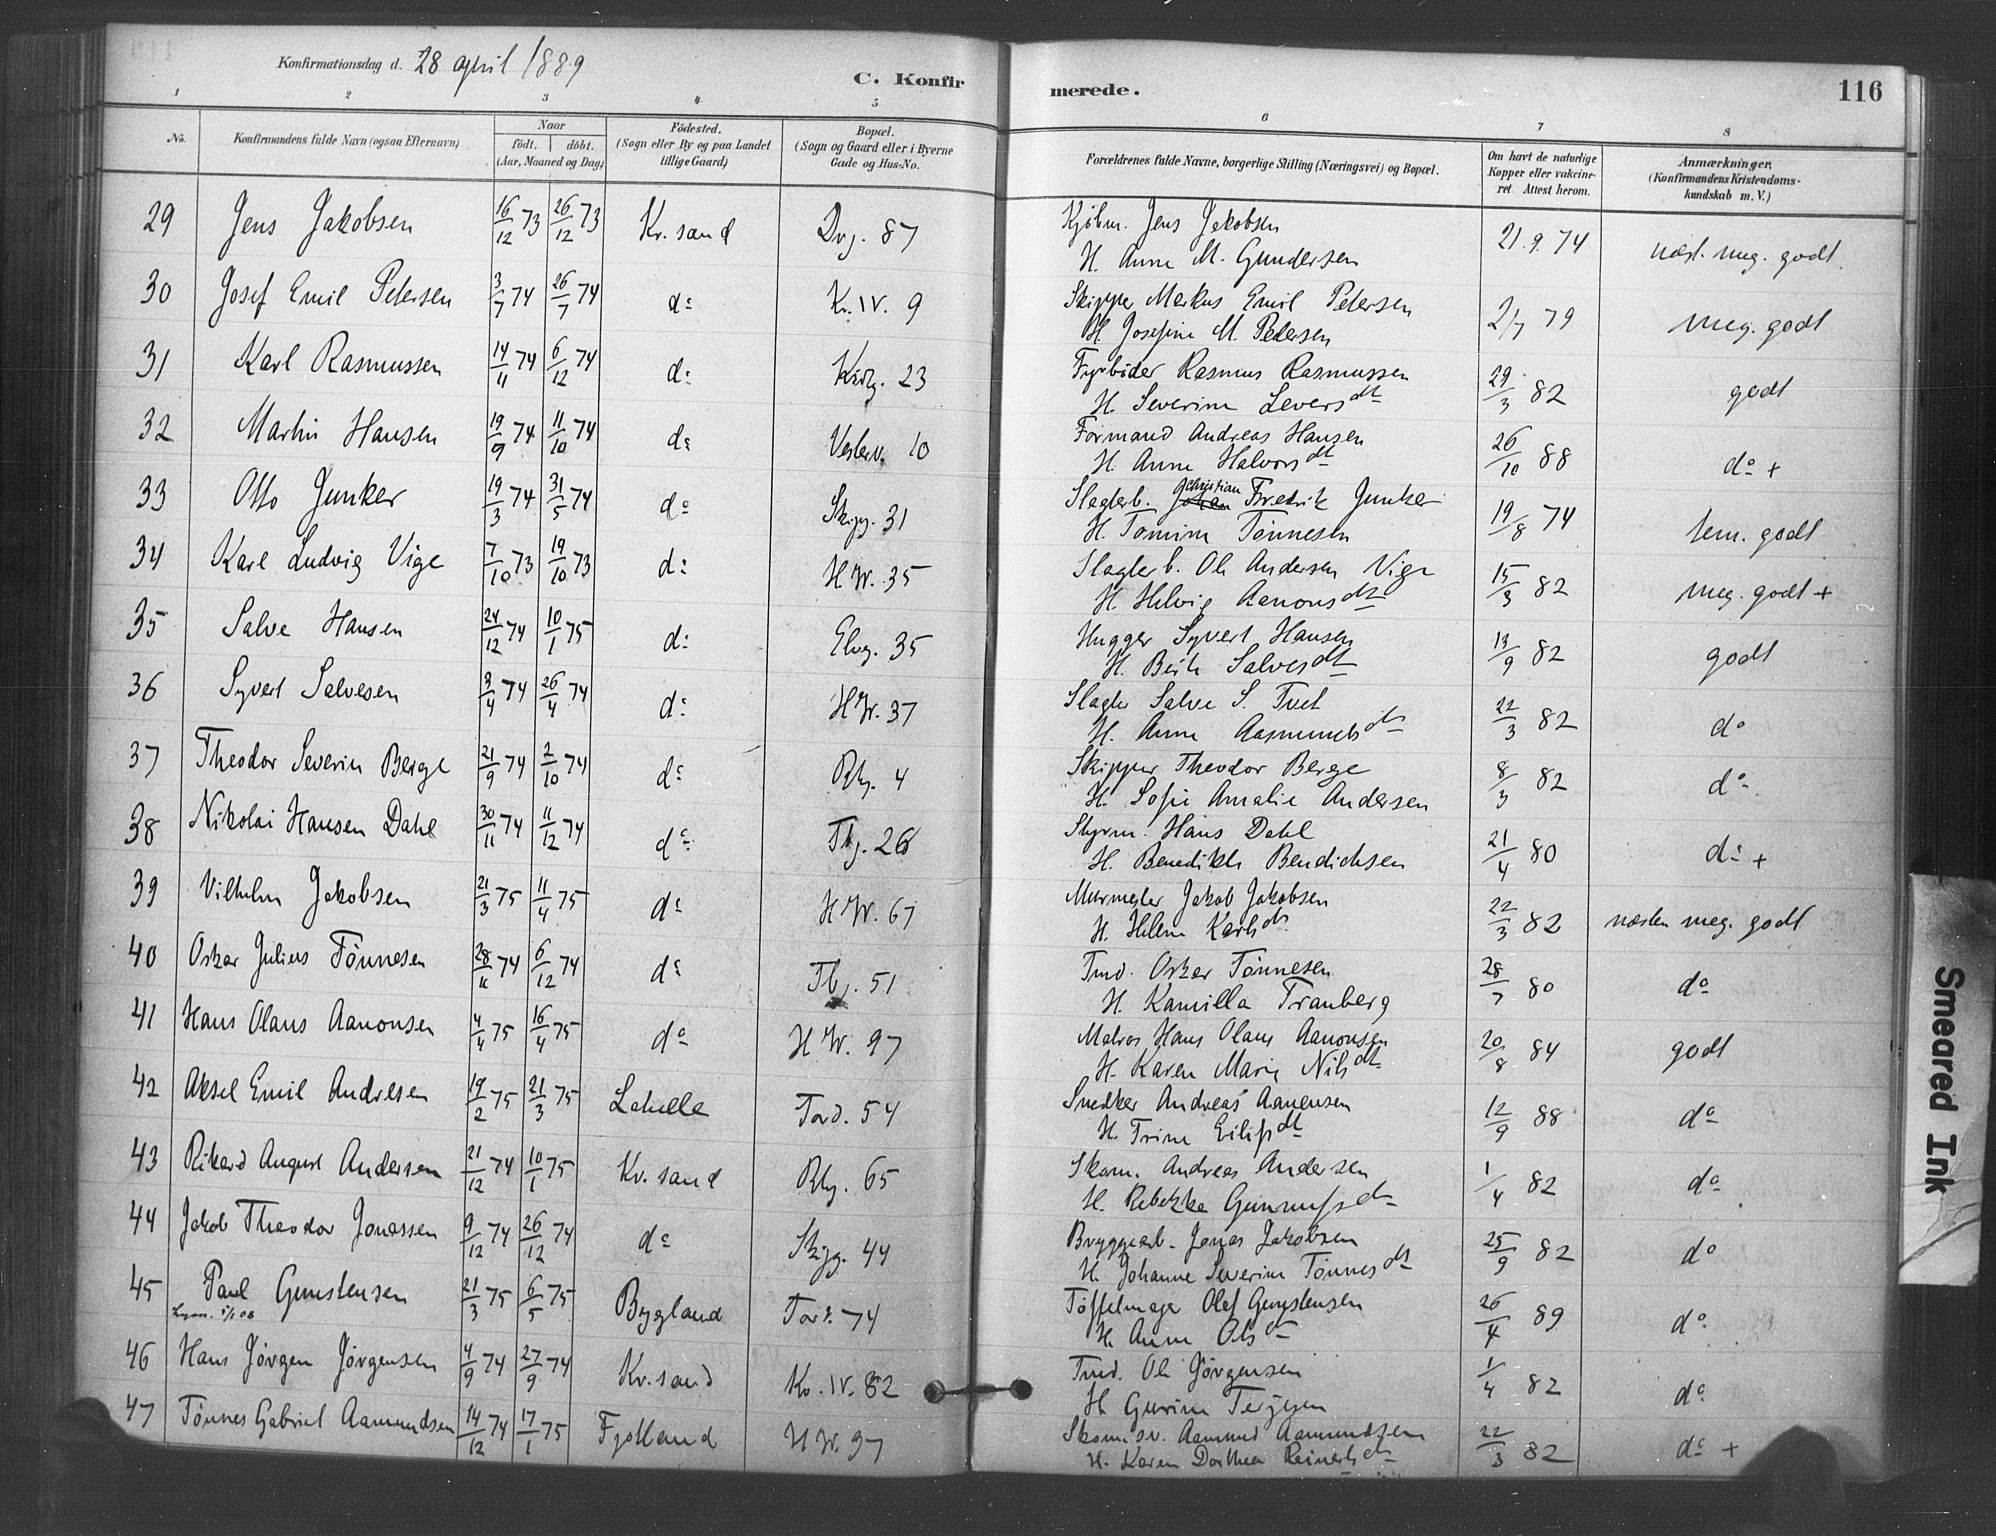 Konfirmationsdag d. 28 april 1889
C. Konfirmerede.
116
1 2 3 4 5 6 7 8
No. Konfirmandens fulde Navn (ogsaa Efternavn) Naar født. døbt. (Aar, Maaned og Dag) Fødested. (Sogn eller By og paa Landet tillige Gaard) Bopæl. (Sogn og Gaard eller i Byerne Gade og Hus-No. Forældrenes fulde Navne, borgerlige Stilling (Næringsvei) og Bopæl. Om havt de naturlige Kopper eller vakcineret. Attest herom. Anmærkninger. (Konfirmandens Kristendomskundskab m. V.)
29 Jens Jakobsen 16/12 73 26/12 73 Kr.sand Drg. 87 Kjøbm. Jens Jakobsen 21.9.74 næst. meg. godt
H. Anne M. Gundersen
30 Josef Emil Petersen 3/7 74 26/7 74 do Kr. IV. 9 Skipper Markus Emil Petersen 2/7 79 meg. godt
H. Josefine M. Petersen
31 Karl Rasmussen 14/11 74 6/12 74 do 23 Fyrbøder Rasmus Rasmussen 29/3 82 godt
H. Severine Levers dt
32 Martin Hansen 19/9 74 11/10 74 do Vesterv. 10 Formand Andreas Hansen 26/10 88 do +
H. Anne Halvors dt
33 Otto Junker 19/3 74 31/5 74 do Skipp. 31 Slagterb. Christian Fredrik Junker 19/8 74 tem. godt
H. Tomine Tønnesen
34 Karl Ludvig Vige 7/10 73 19/10 73 do H.W. 35 Slagterb. Ole Andersen Vige 15/3 82 meg. godt +
H. Helvig Aanons dt
35 Salve Hansen 24/12 74 10/1 75 do Elvg. 35 Hugger Syvert Hansen 13/9 82 godt
H. Berte Salves dt
36 Syvert Salvesen 3/4 74 26/4 74 do H.W. 37 Slagter Salve S. Tvet 22/3 82 do
H. Anne Aasmunds dt
37 Theodor Severin Berge 21/9 74 2/10 74 do Rhg. 4 Skipper Theodor Berge 8/3 82 do
H. Sofie Amalie Andersen
38 Nikolai Hansen Dahl 30/11 74 11/12 74 do Tbg. 26 Styrm. Hans Dahl 21/4 80 do +
H. Benedikte Bendichsen
39 Vilhelm Jakobsen 21/3 75 11/4 75 do H.W. 67 Murmester Jakob Jakobsen 22/3 82 næsten meg. godt
H. Helene Karls dt
40 Oskar Julius Tønnesen 28/11 74 6/12 74 do Tbg. 51 Tmd. Oskar Tønnesen 28/7 80 do
H. Kamilla Tranberg
41 Hans Olaus Aanonsen 4/4 75 16/4 75 do H.W. 97 Matros Hans Olaus Aanonsen 20/8 84 godt
H. Karen Marie Nils dt
42 Aksel Emil Andresen 19/2 75 21/3 75 Lahelle Tord. 54 Snedker Andreas Aanensen 12/9 88 do
H. Trine Eilifs dt
43 Rikard August Andersen 21/12 74 10/1 75 Kr.sand Rhg. 65 Skom. Andreas Andersen 1/4 82 do
H. Rebekka Gunnufs dt
44 Jakob Theodor Jonassen 9/12 74 26/12 74 do Skipp. 44 Bryggearb. Jonas Jakobsen 25/9 82 do
H. Johanne Severine Tønnes dt
45 Paul Gunstensen 21/3 75 6/5 75 Bygland Tord. 74 Tøffelmager Olef Gunstensen 26/4 89 do
H. Anne Ols dt
46 Hans Jørgen Jørgensen 4/9 74 27/9 74 Kr.sand Kr. IV. 82 Tmd. Ole Jørgensen 1/4 82 do
H. Gurine Terjesen
47 Tønnes Gabriel Aamundsen 14/12 74 17/1 75 Fjotland H.W. 97 Skom.sv. Aamund Aamundsen 22/3 82 do +
H. Karen Dorthea Reinerts dt
Smeared Ink